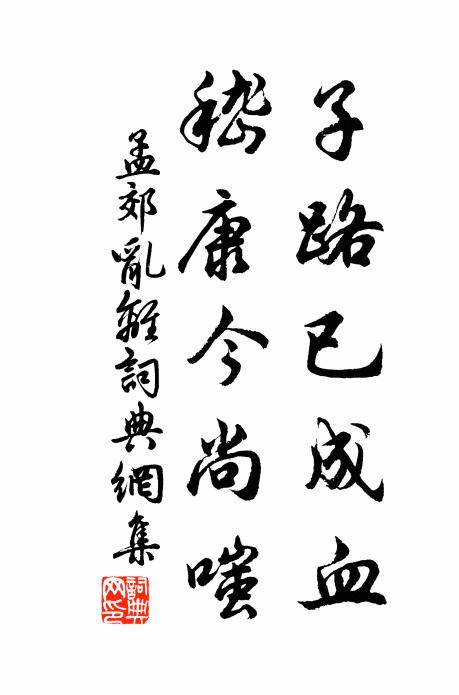 子路已成血
嵇康今尚嗤
孟郊亂離詞典網集
詞典網印